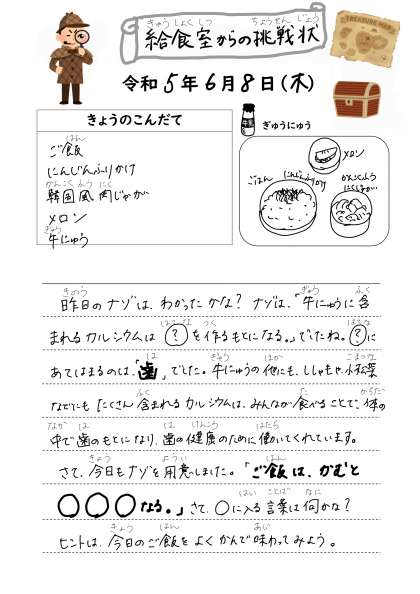 給食室からの挑戦状
TREASURE MAP
令和5年6月8日(木)
きょうのこんだて
ご飯
にんじんふりかけ
韓国風肉じゃが
メロン
牛にゅう
ぎゅうにゅう
メロン
ごはん
にんじんふりかけ
かんこくふう
にくじゃが
昨日のナゾは、わかったかな？ナゾは、「牛にゅうに含
まれるカルシウムは？を作るもとになる。」でしたね。？に
あてはまるのは、「歯」でした。牛にゅうの他にも、ししゃもや、小松菜
などにもたくさん含まれるカルシウムは、みんなが食べることで、体の
中で歯のもとになり、歯の健康のために働いてくれています。
さて、今日もナゾを用意しました。「ご飯は、かむと
〇〇〇なる。」さて、〇に入る言葉は何かな？
ヒントは、今日のご飯をよくかんで味わってみよう。